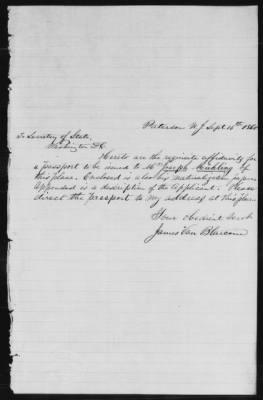 Paterson N.J. Sept 15th 186
To Secretary of State,
Washington D.C.
Herewith are the requisite affidavits for
a passport to be issued to Mr Joseph
this place. Enclosed is also his naturalization papers
Appended is a description of the applicant. Please
direct the passport to my address at this place
Your obedient Servt
James Van Blarcom